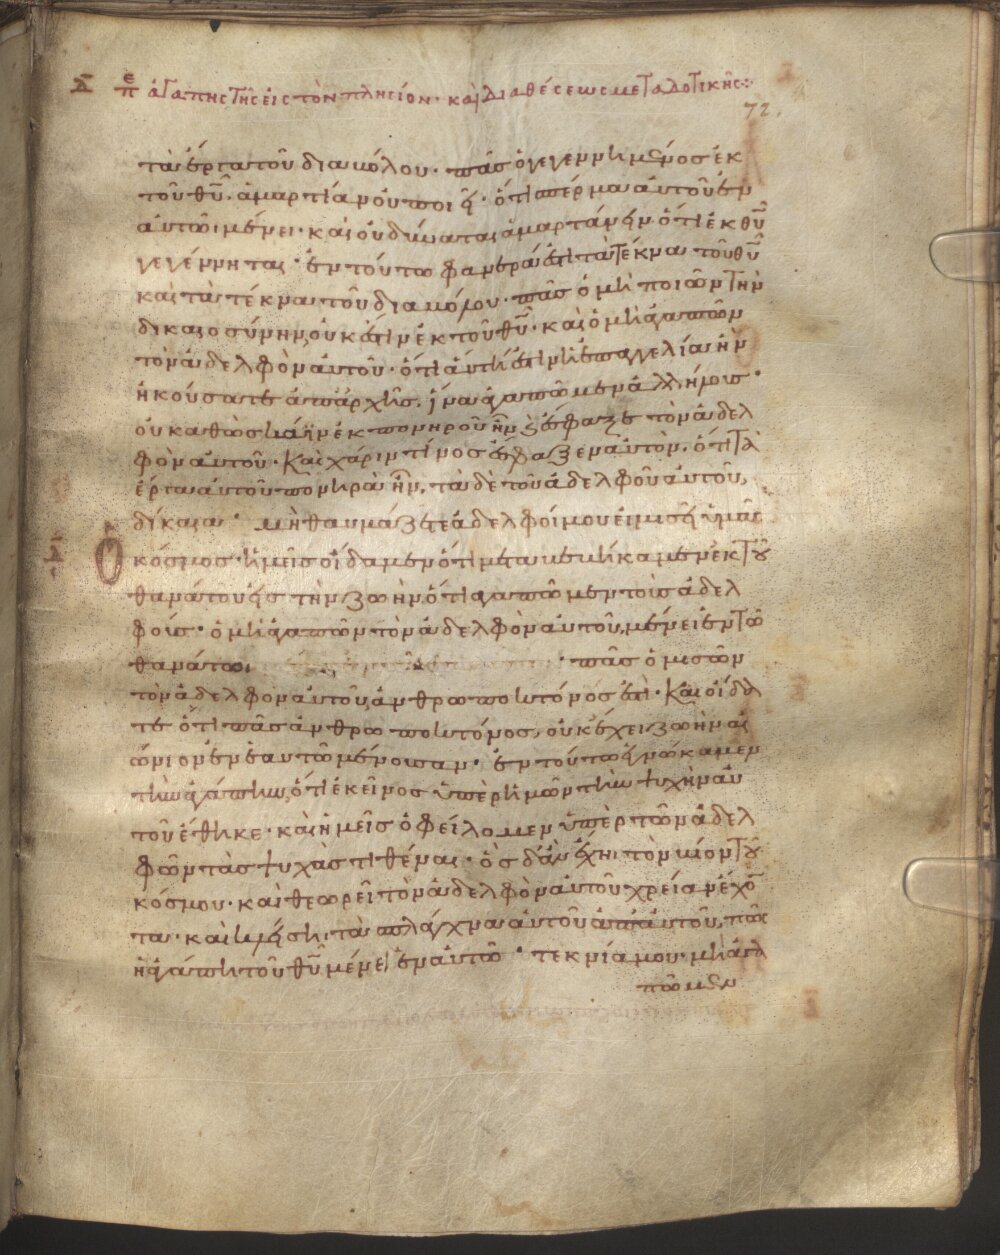 Δ ΕΠ ἀγάπης τῆς εἰς τὸν πλησίον· καὶ διαθέσεως μεταδοτικῆς:
72.
τὰ ἔργα τοῦ διαβόλου· πᾶς ὁ γεγεννημένος ἐκ
τοῦ θῦ, ἁμαρτίαν οὐ ποιεῖ· ὅτι σπέρμα αὐτοῦ ἐν
αὐτῶ μένει· καὶ οὐ δύναται ἁμαρτάνειν ὅτι ἐκ θῦ
γεγέννηται· ἐν τούτω φανερά ἐστι τὰ τέκνα τοῦ θῦ
καὶ τὰ τέκνα τοῦ διαβόλου· πᾶς ὁ μὴ ποιῶν τὴν
δικαιοσύνην, οὐκ ἔστιν ἐκ τοῦ θῦ· καὶ ὁ μὴ ἀγαπῶν
τὸν ἀδελφὸν αὐτοῦ· ὅτι αὕτη ἐστὶν ἡ ἐπαγγελία ἣν
ἠκούσατε ἀπαρχῆς, ἵνα ἀγαπῶμεν ἀλλήλους·
οὐ καθὼς κάϊν ἐκ πονηροῦ ἦν ἔσφαξε τὸν ἀδελ
φὸν αὐτοῦ· καὶ χάριν τίνος ἔσφαξεν αὐτὸν, ὅτι τὰ
ἔργα αὐτοῦ πονηρὰ ἦν, τὰ δὲ τοῦ ἀδελφοῦ αὐτοῦ,
δίκαια· μὴ θαυμάζετε ἀδελφοί μου εἰ μισεῖ ὑμᾶς
ὁ κόσμος· ἡμεῖς οἴδαμεν ὅτι μεταβεβήκαμεν ἐκ τοῦ
θανάτου εἰς τὴν ζωὴν, ὅτι ἀγαπῶμεν τοὺς ἀδελ
φούς· ὁ μὴ ἀγαπῶν τὸν ἀδελφὸν αὐτοῦ, μένει ἐν τῶ
θανάτω· πᾶς ὁ μισῶν
τὸν ἀδελφὸν αὐτοῦ, ἀνθρωποκτόνος ἐστί· καὶ οἴδα
τε ὅτι πᾶς ἀνθρωποκτόνος, οὐκ ἔχει ζωὴν αἰ
ώνιον ἐν ἑαυτῶ μένουσαν· ἐν τούτω ἐγνώκαμεν
τὴν ἀγάπην, ὅτι ἐκεῖνος ὑπὲρ ἡμῶν τὴν ψυχὴν αὐ
τοῦ ἔθηκε· καὶ ἡμεῖς ὀφείλομεν ὑπὲρ τῶν ἀδελ
φῶν τὰς ψυχὰς τιθέναι· ὃς δ' ἂν ἔχη τὸν βίον τοῦ
κόσμου· καὶ θεωρεῖ τὸν ἀδελφὸν αὐτοῦ χρείαν ἔχο
τα· καὶ κλείση τὰ σπλάγχνα αὐτοῦ ἀπ' αὐτοῦ, πῶς
ἡ ἀγάπη τοῦ θῦ μένει ἐν αὐτῶ· τεκνία μου· μὴ ἀγα
πῶμεν